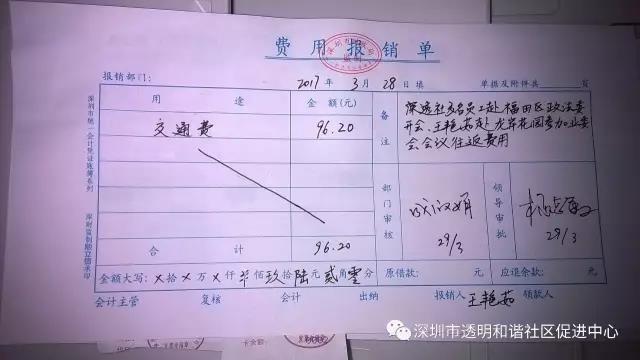 费用报销单
报销部门:
2017年3月28日填
单据及附件共 页
用途
金额(元)
交通费
96.20
备注
深透社多名员工赴福田区政法委
开会、王艳茹赴龙岸花园参加业委
会会议往返费用
部门审核
29/3
领导审批
29/3
合计
96.20
金额大写:×拾×万×仟 佰玖拾陆元贰角零分
原借款: 元
应退余款: 元
会计主管
复核
会计
出纳
报销人 王艳茹
领款人
深圳市统一会计凭证账簿系列
深圳市透明和谐社区促进中心